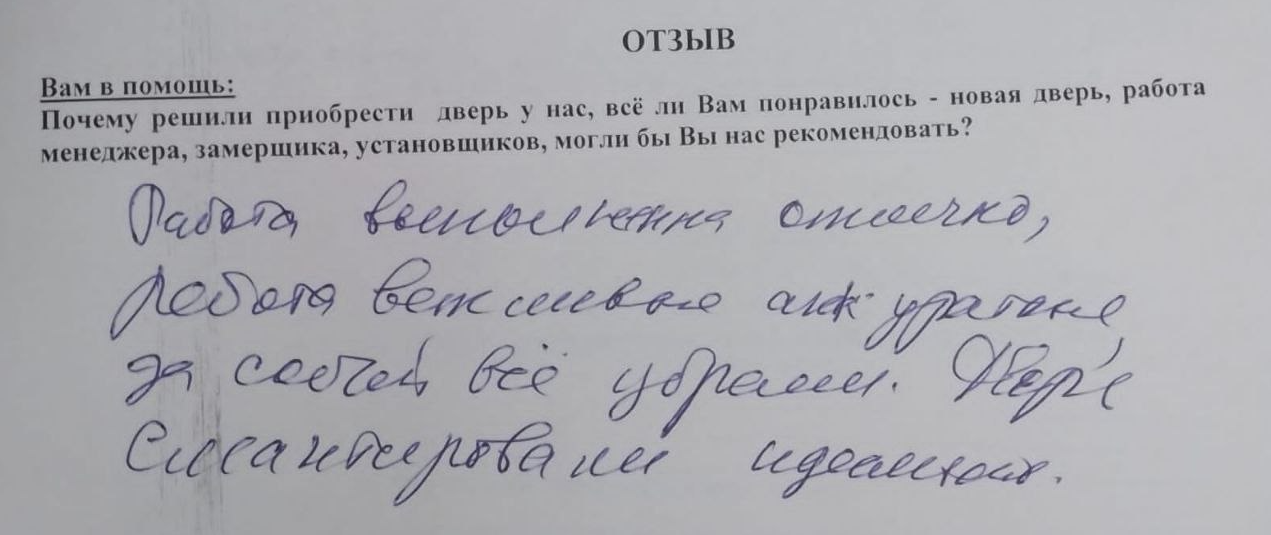 ОТЗЫВ
Вам в помощь:
Почему решили приобрести дверь у нас, всё ли Вам понравилось - новая дверь, работа
менеджера, замерщика, установщиков, могли бы Вы нас рекомендовать?
Работа выполненна отлично,
работа вежливые аккуратные
за собой всё убрали. Двери
смонтировали идеально.